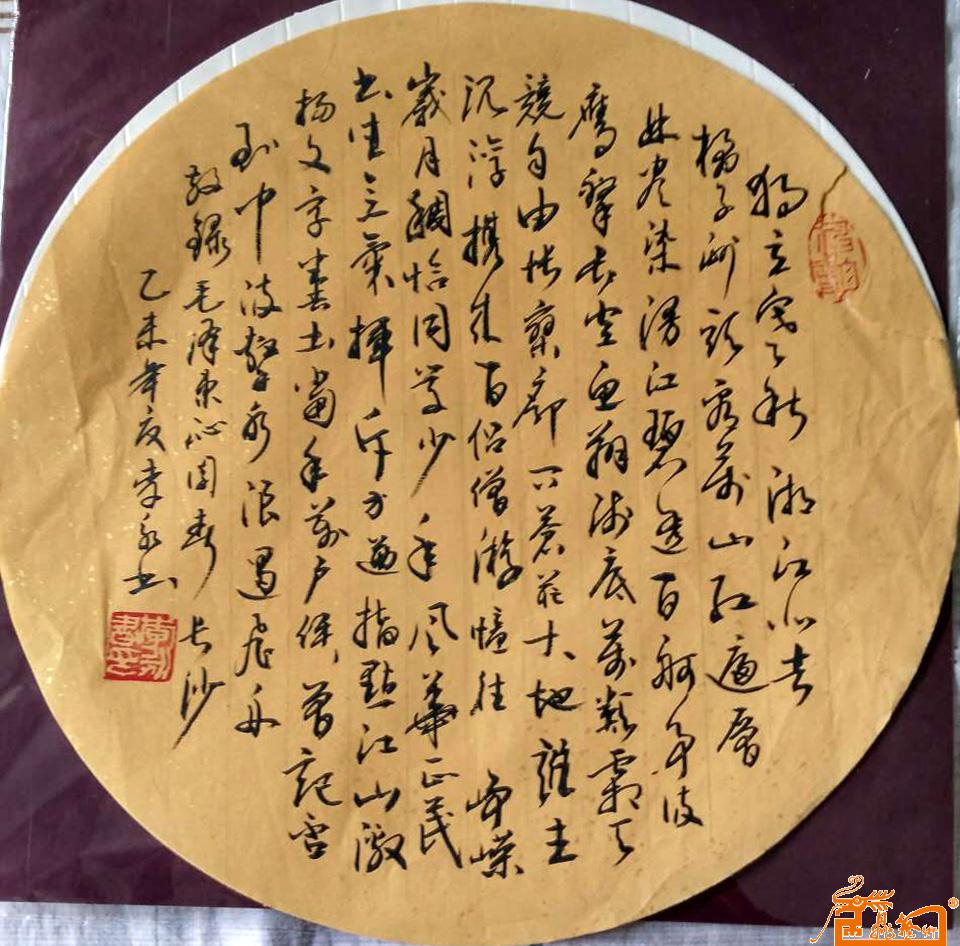 独立寒秋 湘江北去
橘子洲头看万山红遍层
林尽染漫江碧透百舸争流
鹰击长空鱼翔浅底万类霜天
競自由怅寥廓问苍茫大地谁主
沉浮携来百侣僧游憶往 峥嵘
歲月稠恰同学少年风華正茂
书生意气揮斥方遒指點江山激
扬文字粪土当年万户侯曾记否
到中流击水浪遏飞舟
敬録毛泽东沁园春 长沙
乙未年夏李永书